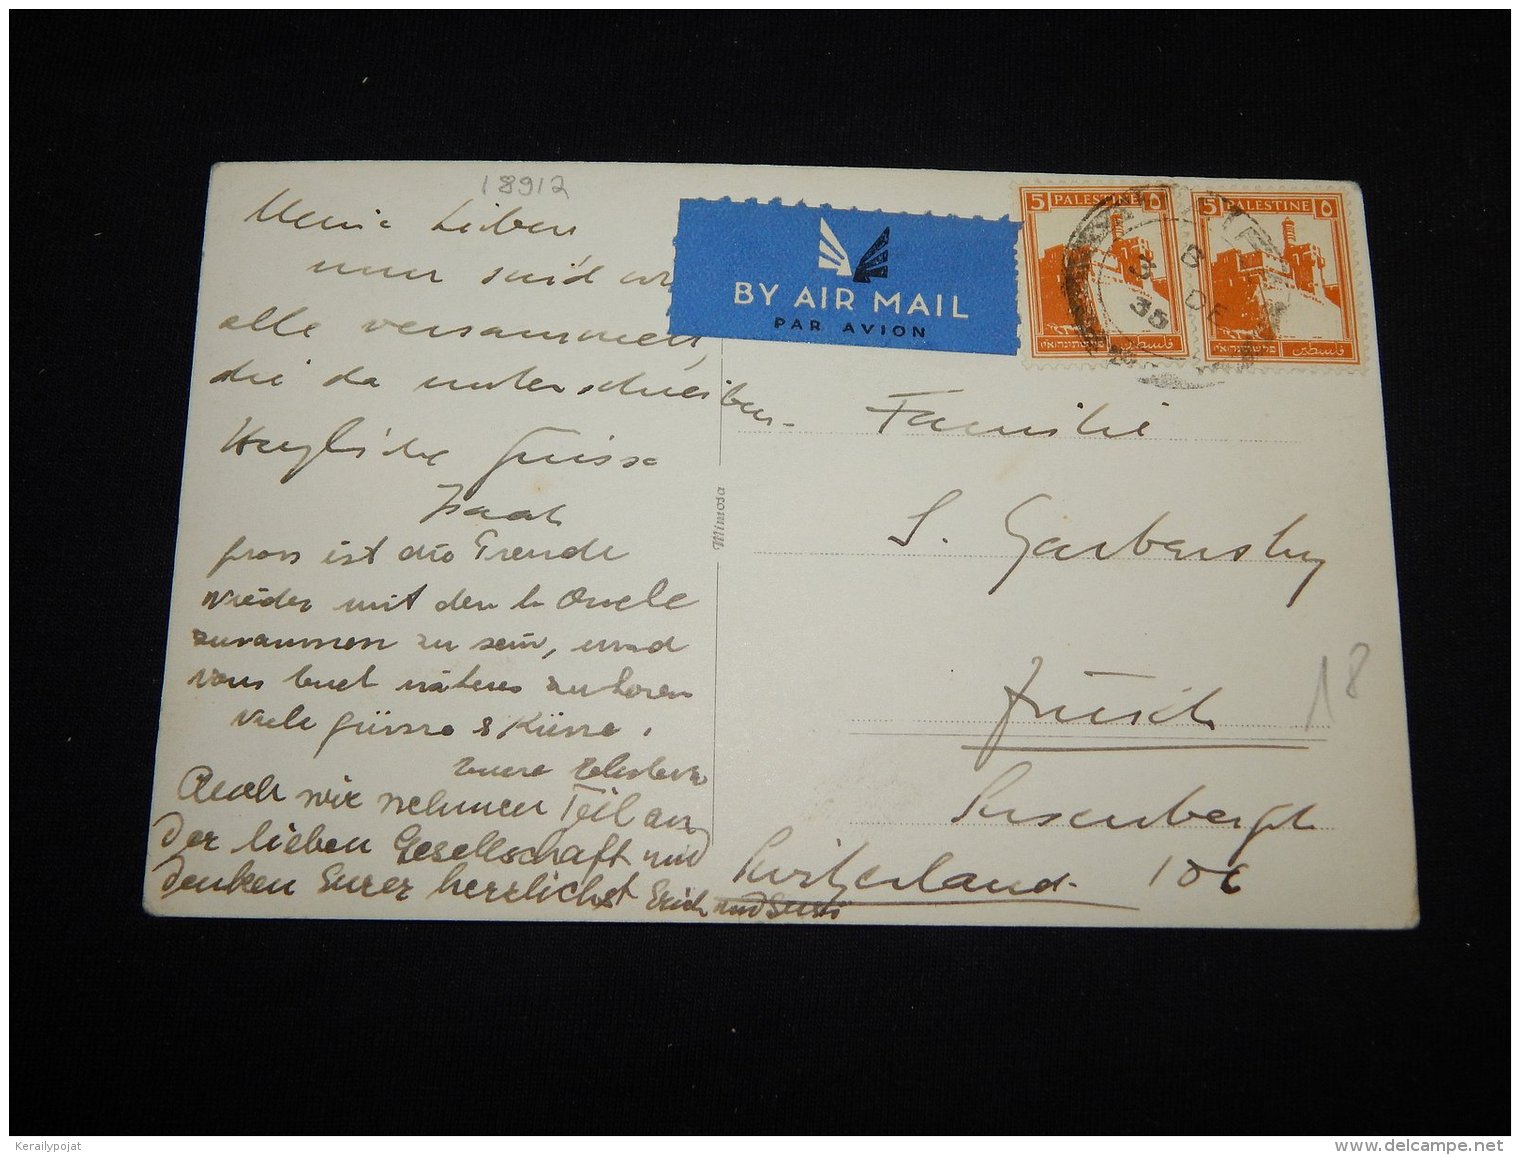 18912
Meine Lieben
nun sind wir
alle versammelt,
die da unterschreiben.
Herzliche Grüsse
Isaak
gross ist die Freude
wieder mit den l. Onkle
zusammen zu sein, und
von Euch näheres zu hören
viele Grüsse & Küsse.
Eure
Auch wir nehmen Teil an
der lieben Gesellschaft und
denken Eurer herzlichst Erich und Susi
BY AIR MAIL
PAR AVION
5 PALESTINE ٥
فلسطين פלשתינה א״י
5 PALESTINE ٥
فلسطين פלשתינה א״י
3 DE
35
Mimosa
Familie
S. Garbarsky
Zürich
18
106
Switzerland
Kerailypojat
delcampe.net